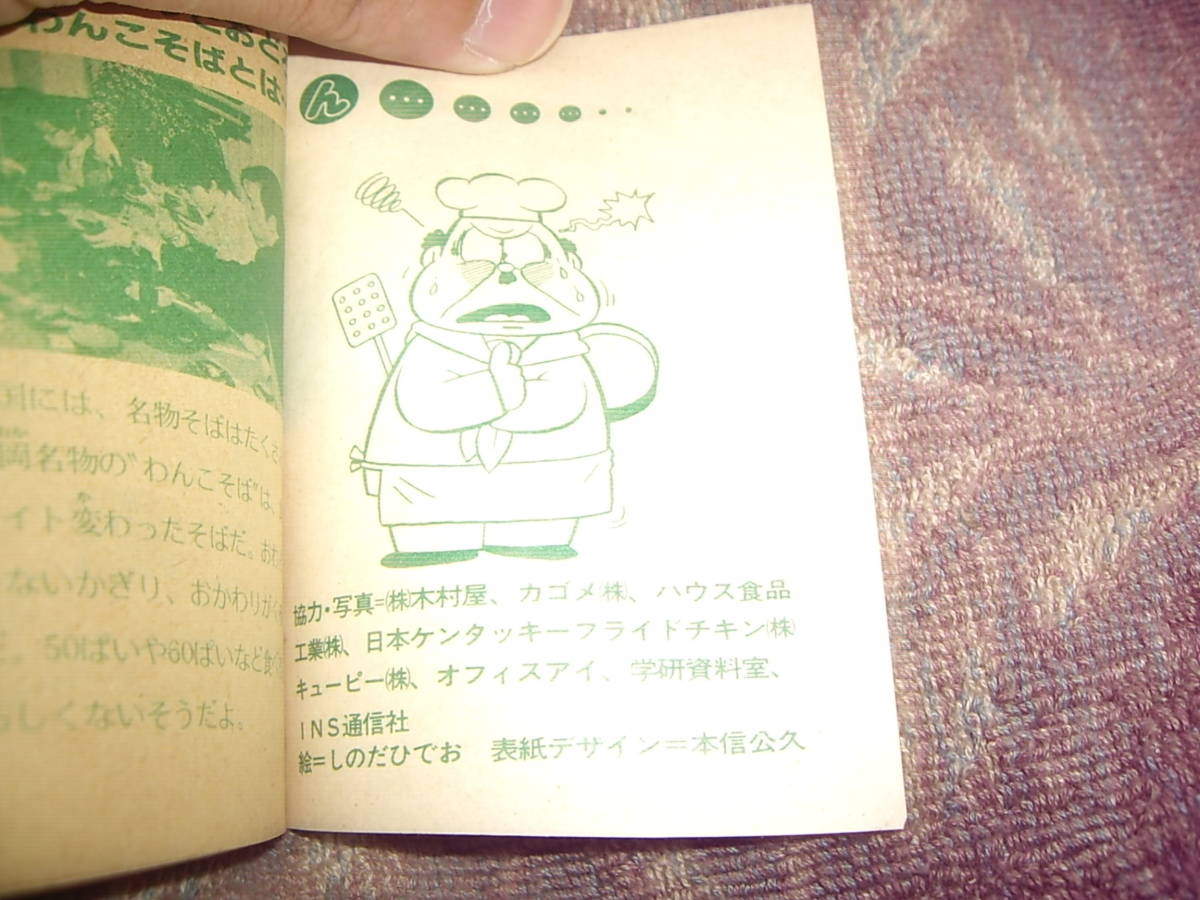 わんこそばとは
国には、名物そばはたくさ
岡名物の"わんこそば"は、
イト変わったそばだ。おわ
ないかぎり、おかわりが
50ぱいや60ぱいなど
しくないそうだよ。
ん
協力・写真=㈱木村屋、カゴメ㈱、ハウス食品
工業㈱、日本ケンタッキーフライドチキン㈱
キューピー㈱、オフィスアイ、学研資料室、
INS通信社
絵=しのだひでお 表紙デザイン=本信公久